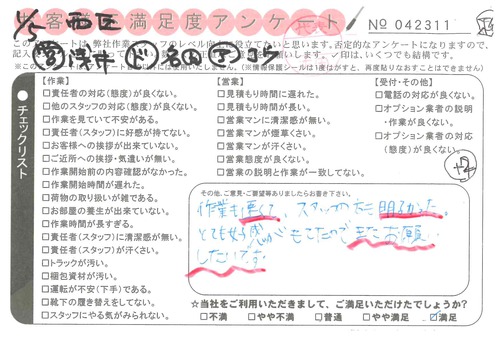 11/5 西区
お客様満足度アンケート
No 042311
このアンケートは、弊社作業スタッフのレベル向上に役立てたいと思います。否定的なアンケートになりますので、
チェックリスト
【作業】
□責任者の対応(態度)が良くない。
□他のスタッフの対応(態度)が良くない。
□作業を見ていて不安がある。
□責任者(スタッフ)に好感が持てない。
□お客様への挨拶が出来ていない。
□ご近所への挨拶・気遣いが無い。
□作業開始前の内容確認がなかった。
□作業開始時間が遅れた。
□荷物の取り扱いが雑である。
□お部屋の養生が出来ていない。
□作業時間が長すぎる。
□責任者(スタッフ)に清潔感が無い。
□責任者(スタッフ)が汗くさい。
□トラックが汚い。
□梱包資材が汚い。
□運転が不安(下手)である。
□靴下の履き替えをしてない。
□スタッフにやる気がみられない。
【営業】
□見積もり時間に遅れた。
□見積もり時間が長い。
□営業マンに清潔感が無い。
□営業マンが煙草くさい。
□営業マンが汗くさい。
□営業態度が良くない。
□営業の説明と作業が一致してない。
【受付・その他】
□電話の対応が良くない。
□オプション業者の説明
・作業が良くない。
□オプション業者の対応
(態度)が良くない。
+2
その他、ご意見・ご要望等ありましたらお書き下さい。
スタッフの方も明るかった。
とても好感がもてたのでまたお願い
したいです
☆当社をご利用いただきまして、ご満足いただけたでしょうか?
□不満 □やや不満 □普通 □やや満足 ☑満足